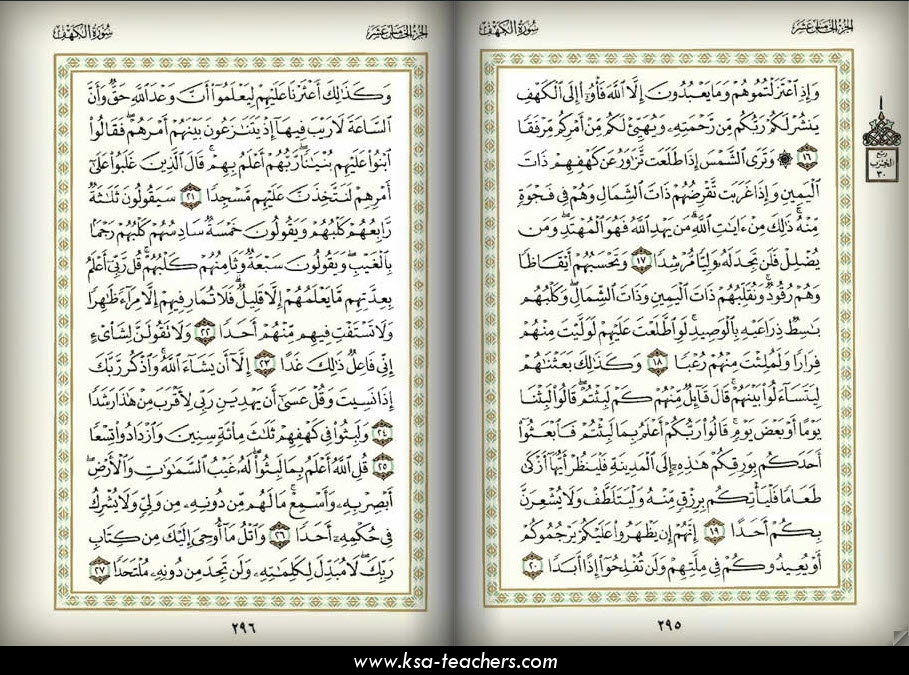 الجزء الخامس عشر
سورة الكهف
وَإِذِ ٱعْتَزَلْتُمُوهُمْ وَمَا يَعْبُدُونَ إِلَّا ٱللَّهَ فَأْوُۥٓا۟ إِلَى ٱلْكَهْفِ
يَنشُرْ لَكُمْ رَبُّكُم مِّن رَّحْمَتِهِۦ وَيُهَيِّئْ لَكُم مِّنْ أَمْرِكُم مِّرْفَقًا
١٦ ۞ وَتَرَى ٱلشَّمْسَ إِذَا طَلَعَت تَّزَٰوَرُ عَن كَهْفِهِمْ ذَاتَ
ٱلْيَمِينِ وَإِذَا غَرَبَت تَّقْرِضُهُمْ ذَاتَ ٱلشِّمَالِ وَهُمْ فِى فَجْوَةٍ
مِّنْهُ ۚ ذَٰلِكَ مِنْ ءَايَٰتِ ٱللَّهِ ۗ مَن يَهْدِ ٱللَّهُ فَهُوَ ٱلْمُهْتَدِ ۖ وَمَن
يُضْلِلْ فَلَن تَجِدَ لَهُۥ وَلِيًّا مُّرْشِدًا ١٧ وَتَحْسَبُهُمْ أَيْقَاظًا
وَهُمْ رُقُودٌ ۚ وَنُقَلِّبُهُمْ ذَاتَ ٱلْيَمِينِ وَذَاتَ ٱلشِّمَالِ ۖ وَكَلْبُهُم
بَٰسِطٌ ذِرَاعَيْهِ بِٱلْوَصِيدِ ۚ لَوِ ٱطَّلَعْتَ عَلَيْهِمْ لَوَلَّيْتَ مِنْهُمْ
فِرَارًا وَلَمُلِئْتَ مِنْهُمْ رُعْبًا ١٨ وَكَذَٰلِكَ بَعَثْنَٰهُمْ
لِيَتَسَآءَلُوا۟ بَيْنَهُمْ ۚ قَالَ قَآئِلٌ مِّنْهُمْ كَمْ لَبِثْتُمْ ۖ قَالُوا۟ لَبِثْنَا
يَوْمًا أَوْ بَعْضَ يَوْمٍ ۚ قَالُوا۟ رَبُّكُمْ أَعْلَمُ بِمَا لَبِثْتُمْ فَٱبْعَثُوٓا۟
أَحَدَكُم بِوَرِقِكُمْ هَٰذِهِۦٓ إِلَى ٱلْمَدِينَةِ فَلْيَنظُرْ أَيُّهَآ أَزْكَىٰ
طَعَامًا فَلْيَأْتِكُم بِرِزْقٍ مِّنْهُ وَلْيَتَلَطَّفْ وَلَا يُشْعِرَنَّ
بِكُمْ أَحَدًا ١٩ إِنَّهُمْ إِن يَظْهَرُوا۟ عَلَيْكُمْ يَرْجُمُوكُمْ
أَوْ يُعِيدُوكُمْ فِى مِلَّتِهِمْ وَلَن تُفْلِحُوٓا۟ إِذًا أَبَدًا ٢٠
٢٩٥
ربع
الحزب
٣٠
الجزء الخامس عشر
سورة الكهف
وَكَذَٰلِكَ أَعْثَرْنَا عَلَيْهِمْ لِيَعْلَمُوٓا۟ أَنَّ وَعْدَ ٱللَّهِ حَقٌّ وَأَنَّ
ٱلسَّاعَةَ لَا رَيْبَ فِيهَآ إِذْ يَتَنَٰزَعُونَ بَيْنَهُمْ أَمْرَهُمْ ۖ فَقَالُوا۟
ٱبْنُوا۟ عَلَيْهِم بُنْيَٰنًا ۖ رَّبُّهُمْ أَعْلَمُ بِهِمْ ۚ قَالَ ٱلَّذِينَ غَلَبُوا۟ عَلَىٰٓ
أَمْرِهِمْ لَنَتَّخِذَنَّ عَلَيْهِم مَّسْجِدًا ٢١ سَيَقُولُونَ ثَلَٰثَةٌ
رَّابِعُهُمْ كَلْبُهُمْ وَيَقُولُونَ خَمْسَةٌ سَادِسُهُمْ كَلْبُهُمْ رَجْمًۢا
بِٱلْغَيْبِ ۖ وَيَقُولُونَ سَبْعَةٌ وَثَامِنُهُمْ كَلْبُهُمْ ۚ قُل رَّبِّىٓ أَعْلَمُ
بِعِدَّتِهِم مَّا يَعْلَمُهُمْ إِلَّا قَلِيلٌ ۗ فَلَا تُمَارِ فِيهِمْ إِلَّا مِرَآءً ظَٰهِرًا
وَلَا تَسْتَفْتِ فِيهِم مِّنْهُمْ أَحَدًا ٢٢ وَلَا تَقُولَنَّ لِشَا۟ىْءٍ
إِنِّى فَاعِلٌ ذَٰلِكَ غَدًا ٢٣ إِلَّآ أَن يَشَآءَ ٱللَّهُ ۚ وَٱذْكُر رَّبَّكَ
إِذَا نَسِيتَ وَقُلْ عَسَىٰٓ أَن يَهْدِيَنِ رَبِّى لِأَقْرَبَ مِنْ هَٰذَا رَشَدًا
٢٤ وَلَبِثُوا۟ فِى كَهْفِهِمْ ثَلَٰثَ مِا۟ئَةٍ سِنِينَ وَٱزْدَادُوا۟ تِسْعًا
٢٥ قُلِ ٱللَّهُ أَعْلَمُ بِمَا لَبِثُوا۟ ۖ لَهُۥ غَيْبُ ٱلسَّمَٰوَٰتِ وَٱلْأَرْضِ ۖ
أَبْصِرْ بِهِۦ وَأَسْمِعْ ۚ مَا لَهُم مِّن دُونِهِۦ مِن وَلِىٍّ وَلَا يُشْرِكُ
فِى حُكْمِهِۦٓ أَحَدًا ٢٦ وَٱتْلُ مَآ أُوحِىَ إِلَيْكَ مِن كِتَابِ
رَبِّكَ ۖ لَا مُبَدِّلَ لِكَلِمَٰتِهِۦ وَلَن تَجِدَ مِن دُونِهِۦ مُلْتَحَدًا ٢٧
٢٩٦
www.ksa-teachers.com